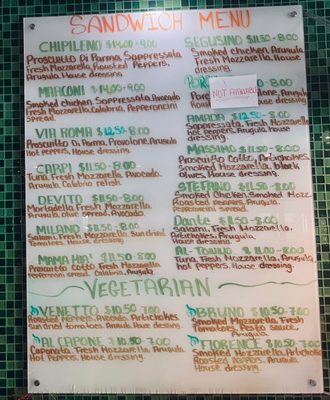 SANDWICH MENU
CHIPILENO $14.00-9.00
Prosciutto Di Parma, Soppressata
Fresh Mozzarella, Roasted Peppers,
Arugula, House dressing.
MARCONI $14.00-9.00
Smoked chicken, Soppressata, Avocado
Fresh Mozzarella, Calabria, Pepperoncini
Spread.
VIA ROMA $12.50-8.00
Prosciutto Di Parma, Provolone, Arugula
hot Peppers, House dressing.
CARPI $11.50-8.00
Fresh Mozzarella, Avocado,
Arugula, Calabria relish.
DEVITO $11.50-8.00
Mortadella, Fresh Mozzarella,
Arugula, olive Spread, Avocado.
MILANO $11.50-8.00
Salami, Fresh Mozzarella, Sun dried
Tomatoes, House dressing.
MAMA MIA' $11.50-8.00
Prosciutto cotto Fresh Mozzarella
Pepperoncini spread, Calabria, Arugula
SEGUSINO $11.50-8.00
Smoked chicken, Arugula,
Fresh Mozzarella, House
dressing.
NOT AVAILABLE
AMALIA $12.50-8.00
Soppressata, Fresh Mozzarella,
hot peppers, Arugula, house
dressing.
MASSIMO $11.50-8.00
Prosciutto Cotto, Artichokes,
Smoked Mozzarella, black
olives, House dressing.
STEFANO $11.50-8.00
Smoked Chicken, Smoked Mozz.
Roasted Peppers, Arugula,
Pepperoncini spread.
Dante $11.50-8.00
Salami, Fresh Mozzarella,
Artichokes, Arugula,
House dressing.
AL-TONNO $11.00-8.00
Tuna, Fresh Mozzarella, Arugula,
hot Peppers, House dressing.
VEGETARIAN
VENETTO $10.50-7.00
Roasted peppers, Avocado, Artichokes,
sun dried tomatoes, Arugula, House dressing
AL CAPONE $10.50-7.00
Caponata, Fresh Mozzarella, Arugula
House dressing.
BRUNO $10.50-7.00
Smoked Mozzarella, Fresh
Tomatoes, Pesto sauce,
Arugula.
FIORENCE $10.50-7.00
Smoked Mozzarella, Artichokes
Roasted Peppers, Arugula,
House dressing.